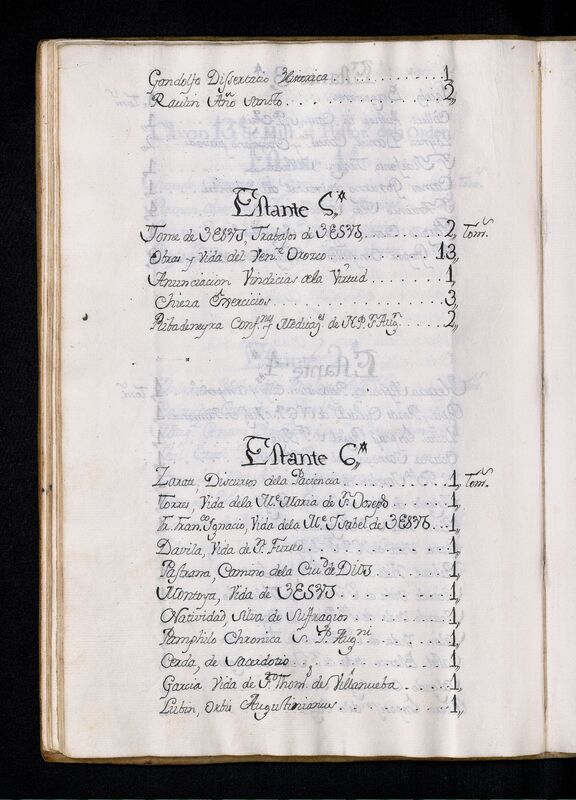 Gandolfo Dissertatio Historica . . . . . . . . . . . 1,,
Raulin Año Santo . . . . . . . . . . . . . . . 2,,
Estante 5,,º
Tome de JESUS, Trabajos de JESUS . . . . . . . . 2,, Tom.s
Obras y Vida del Ven.e Orozco . . . . . . . 13,,
Anunciacion Vindicias dela Virtud . . . . . . . . 1,,
Chieza Exercicios . . . . . . . . . . . . . . . . 3,,
Ribadeneyra Conf.nes y Meditac.s de N.P.S. Aug.n . . . . . 2,,
Estante 6,,º
Zarate, Discursos dela Paciencia . . . . . . . . . . 1,, Tom.s
Torres, Vida dela M.e Maria de S.n Joseph . . . . . . 1,,
Fr. Fran.co Ignacio, Vida dela M.e Isabel de JESUS . . . 1,,
Davila, Vida de S.n Furseo . . . . . . . . . . . 1,,
Pastrana, Camino dela Ciu.d de Dios . . . . . . . . 1,,
Montoya, Vida de JESUS . . . . . . . . . . . 1,,
Natividad, Silva de Suffragios . . . . . . . . . . 1,,
Pamphilo Chronica S. P. Aug.ni . . . . . . . . 1,,
Cerda, de Sacerdotio . . . . . . . . . . . . . . . 1,,
Garcia Vida de S.to Thom.s de Villanueba . . . . . . 1,,
Lubin, Orbis Augustinianus . . . . . . . . . . . 1,,